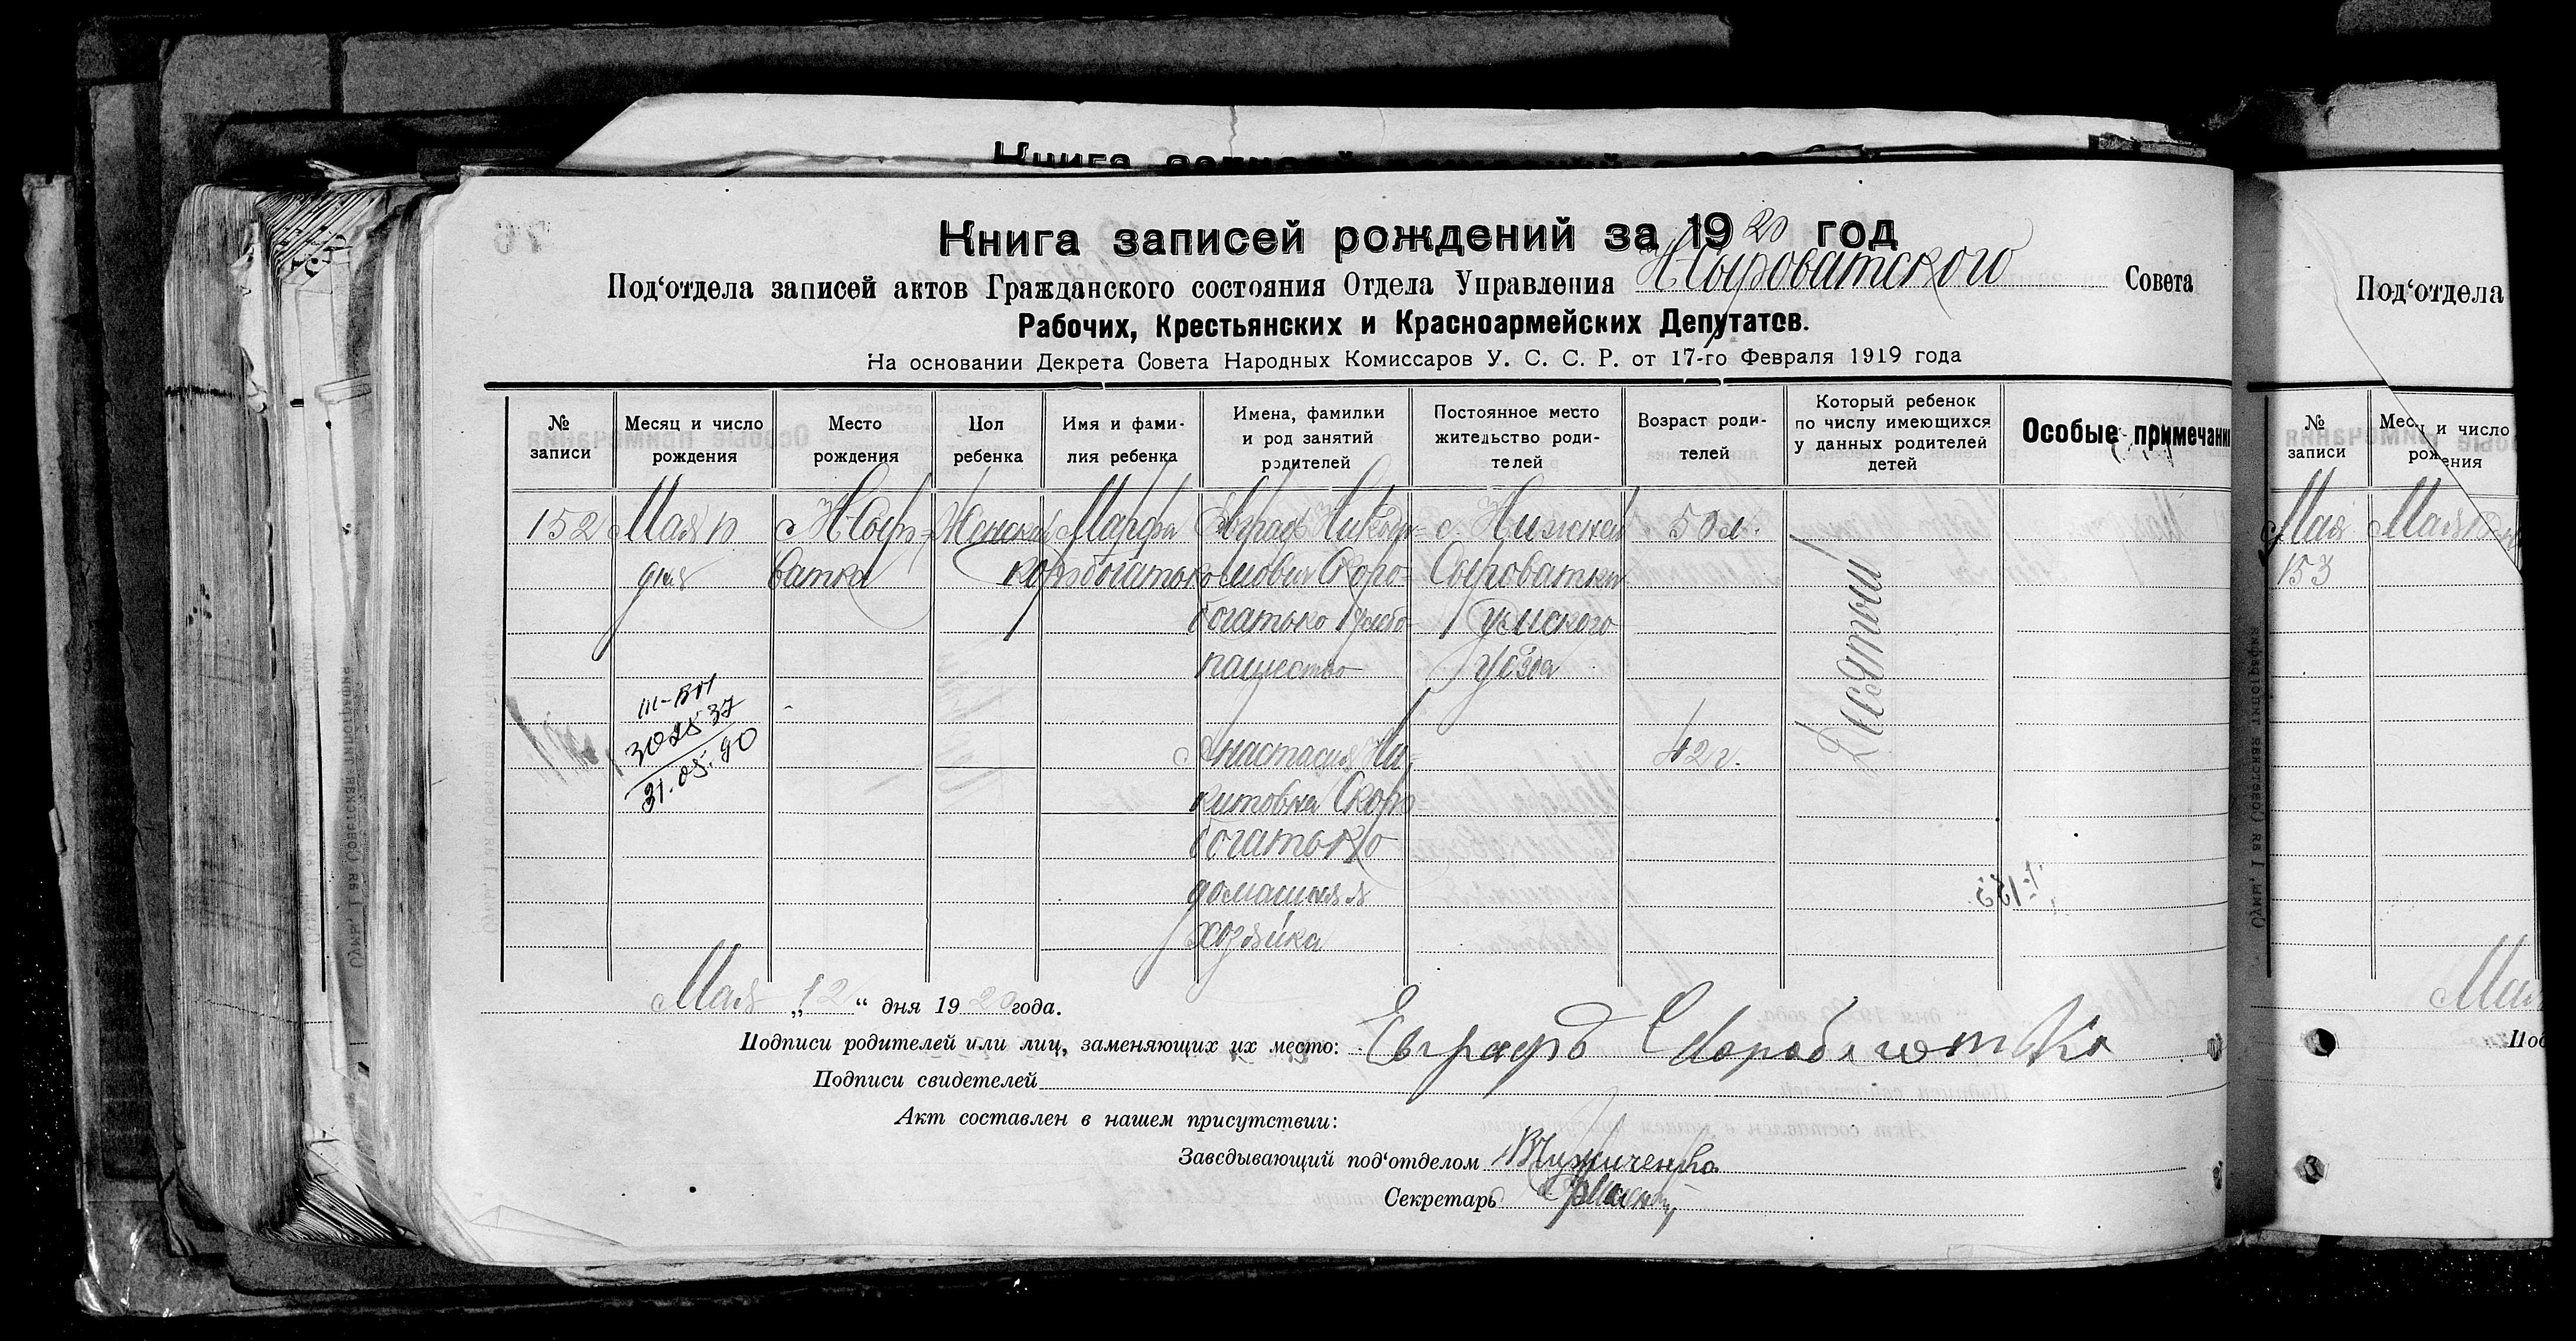 Книга записей рождений за 1920 год
Под‘отдела записей актов Гражданского состояния Отдела Управления Н Сыроватского Совета
Рабочих, Крестьянских и Красноармейских Депутатов.
На основании Декрета Совета Народных Комиссаров У. С. С. Р. от 17-го Февраля 1919 года
№ записи
Месяц и число рождения
Место рождения
Пол ребенка
Имя и фами-
лия ребенка
Имена, фамилии
и род занятий
родителей
Постоянное место
жительство роди-
телей
Возраст роди-
телей
Который ребенок
по числу имеющихся
у данных родителей
детей
Особые примечани
152
Мая
дня
Н Сыр-
ватка
Женский
Марфа
Скоробогатько
Евграф
Скоро-
богатько Хлебо
пашество
Анастасия Ни-
китовна Скоро
богатько
домашняя
хозяйка
с. Нижней
Сыроватки
Сумского
уезда
50 л.
42 г.
Десятый
III-ВМ
302537
31.05.90
Мая „12“ дня 1920 года.
Подписи родителей или лиц, заменяющих их место: Евграфъ
Подписи свидетелей
Акт составлен в нашем присутствии:
Заведывающий под‘отделом
Секретарь
Под‘отдела
№ записи
Месяц и число
рождения
Мая
153
Мая
Мая
Под